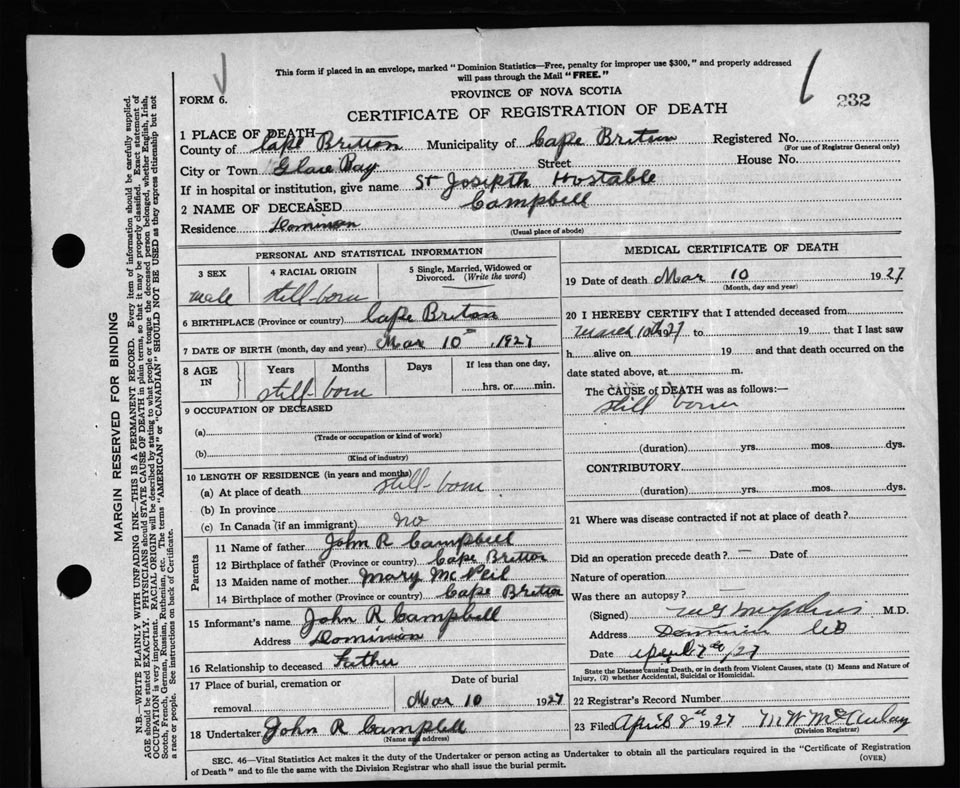 This form if placed in an envelope, marked "Dominion Statistics—Free, penalty for improper use $300," and properly addressed
will pass through the Mail "FREE."
232
FORM 6.
PROVINCE OF NOVA SCOTIA
CERTIFICATE OF REGISTRATION OF DEATH
1 PLACE OF DEATH—
County of Cape Britton Municipality of Cape Briton Registered No.
(For use of Registrar General only)
City or Town Glace Bay Street House No.
If in hospital or institution, give name St Josipth Hostable
2 NAME OF DECEASED Campbill
Residence Dominion
(Usual place of abode)
PERSONAL AND STATISTICAL INFORMATION
3 SEX 4 RACIAL ORIGIN 5 Single, Married, Widowed or Divorced. (Write the word)
male still-born
6 BIRTHPLACE (Province or country) Cape Briton
7 DATE OF BIRTH (month, day and year) Mar 10 , 1927
8 AGE IN Years Months Days If less than one day,
still-born hrs. or min.
9 OCCUPATION OF DECEASED
(a)
(Trade or occupation or kind of work)
(b)
(Kind of industry)
10 LENGTH OF RESIDENCE (in years and months)
(a) At place of death still-born
(b) In province
(c) In Canada (if an immigrant) no
Parents
11 Name of father John R Campbell
12 Birthplace of father (Province or country) Cape Britton
13 Maiden name of mother Mary Mc Neil
14 Birthplace of mother (Province or country) Cape Britton
15 Informant's name John R Campbell
Address Dominion
16 Relationship to deceased Father
17 Place of burial, cremation or removal Date of burial
Mar 10 1927
18 Undertaker John R Campbell
(Name and address)
MEDICAL CERTIFICATE OF DEATH
19 Date of death Mar 10 1927
(Month, day and year)
20 I HEREBY CERTIFY that I attended deceased from
March 10th 1927 to 19 that I last saw
h alive on 19 and that death occurred on the
date stated above, at m.
The CAUSE of DEATH was as follows:—
still born
(duration) yrs. mos. dys.
CONTRIBUTORY
(duration) yrs. mos. dys.
21 Where was disease contracted if not at place of death?
Did an operation precede death? — Date of
Nature of operation
Was there an autopsy? —
(Signed) M.D.
Address Dominion CB
Date April 7th/27
State the Disease causing Death, or in death from Violent Causes, state (1) Means and Nature of
Injury, (2) whether Accidental, Suicidal or Homicidal.
22 Registrar's Record Number
23 Filed April 8th 1927 M W McAulay
(Division Registrar)
SEC. 46—Vital Statistics Act makes it the duty of the Undertaker or person acting as Undertaker to obtain all the particulars required in the "Certificate of Registration
of Death" and to file the same with the Division Registrar who shall issue the burial permit.
(OVER)
MARGIN RESERVED FOR BINDING
N.B.—WRITE PLAINLY WITH UNFADING INK—THIS IS A PERMANENT RECORD. Every item of information should be carefully supplied.
AGE should be stated EXACTLY. PHYSICIANS should STATE CAUSE OF DEATH in plain terms, so that it may be properly classified. Exact statement of
OCCUPATION is very important. RACIAL ORIGIN will be described by stating to what people or tongue the deceased person belonged, whether English, Irish,
Scotch, French, German, Russian, Ruthenian, etc. The terms "AMERICAN" or "CANADIAN" SHOULD NOT BE USED as they express citizenship but not
a race or people. See instructions on back of Certificate.